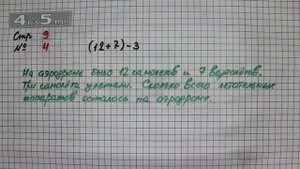 4DO5.RU
Стр. 9
№ 4 (12+7)-3
На аэродроме было 12 самолётов и 7 вертолётов.
Три самолёта улетели. Сколько всего летательных
аппаратов осталось на аэродроме.